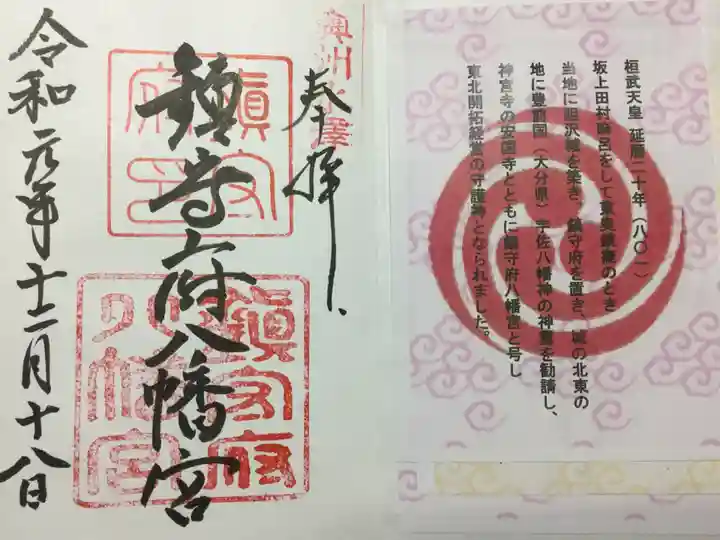 桓武天皇 延暦二十年(八〇一)
坂上田村麿呂をして東奥鎮撫のとき
当地に胆沢城を築き、鎮守府を置き、城の北東の
地に豊前国(大分県)宇佐八幡神の神霊を勧請し、
神宮寺の安国寺とともに鎮守府八幡宮と号し
東北開拓経営の守護神となられました。
奥州水澤
奉拝
鎮守府八幡宮
鎮守府印
鎮守府八幡宮
令和元年十二月十八日